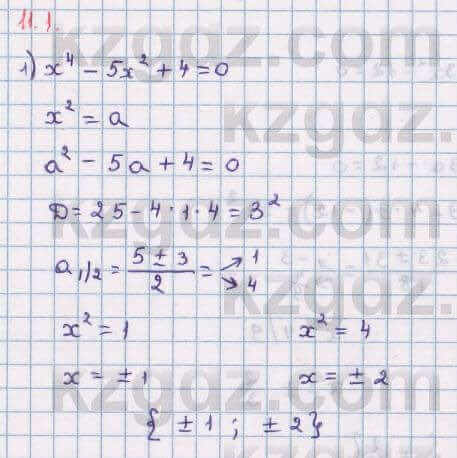 11.1.
1) x⁴ - 5x² + 4 = 0
x² = a
a² - 5a + 4 = 0
D = 25 - 4 · 1 · 4 = 3²
a₁/₂ = (5 ± 3)/2 = ↗ 1 ↘ 4
x² = 1 x² = 4
x = ± 1 x = ± 2
{ ± 1 ; ± 2 }
kzgdz.com
kzgdz.com
kzgdz.com
kzgdz.com